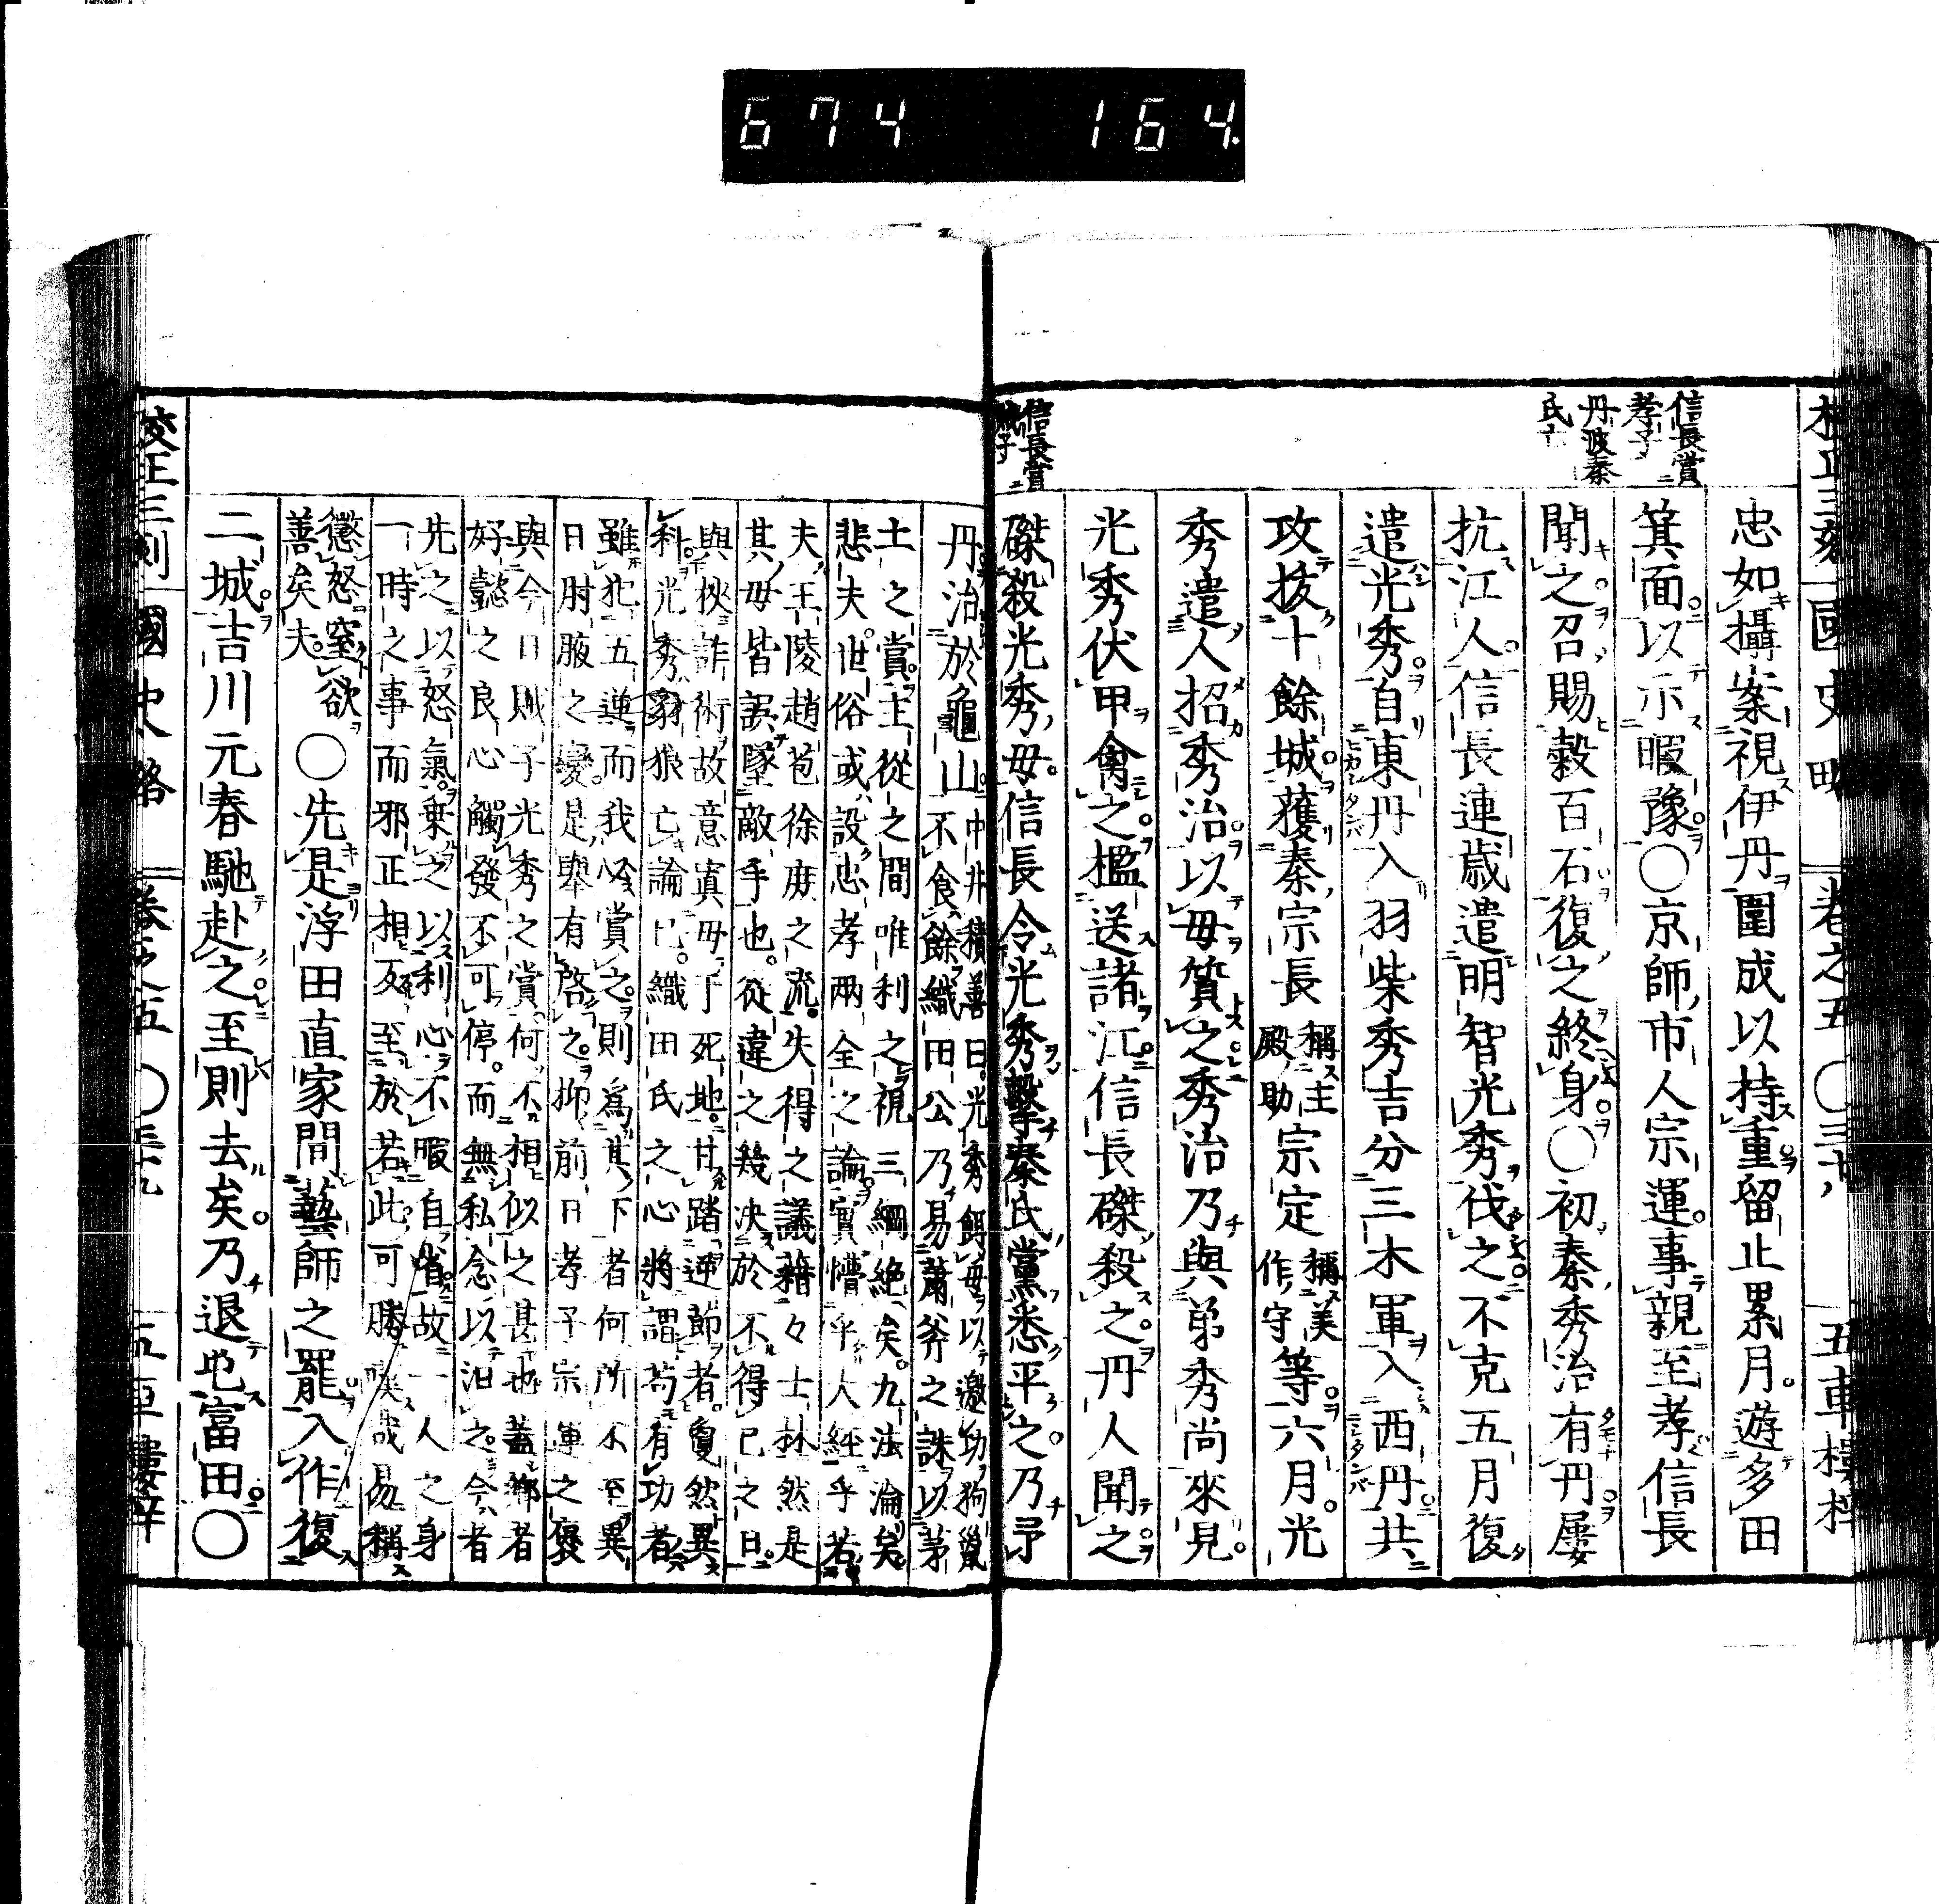 674 164.
校正三刻 國史略 卷之五 〇三十 五車樓梓
信長賞
孝子
丹波秦
氏亡
忠如攝案視伊丹圍成以持重留止累月遊多田
箕面以示暇豫〇京師市人宗運事親至孝信長
聞之召賜穀百石復之終身〇初秦秀治有丹屢
抗江人信長連歳遣明智光秀伐之不克五月復
遣光秀自東丹入羽柴秀吉分三木軍入西丹共
攻拔十餘城獲秦宗長稱主殿助宗定稱美作守等六月光
秀遣人招秀治以母質之秀治乃與弟秀尚來見
光秀伏甲禽之檻送諸江信長磔殺之丹人聞之
信長賞
賊子
磔殺光秀母信長令光秀擊秦氏黨悉平之乃予
丹治於龜山中井積善曰光秀餌母以邀功狗彘
不食餘織田公乃易蕭斧之誅以茅
土之賞主從之間唯利之視三綱絶矣九法淪矣
悲夫世俗或設忠孝兩全之論實懵乎大經乎若
夫王陵趙苞徐庶之流失得之議藉々士林然是
其母皆誤墜敵手也從違之幾决於不得已之日
與挾詐術故意寘母于死地甘踏逆節者敻然異
科光秀豺狼亡論已織田氏之心將謂苟有功者
雖犯五逆而我必賞之則爲其下者何所不至異
日肘腋之變是擧有啓之抑前日孝子宗運之褒
與今日賊子光秀之賞何不相似之甚也蓋鄕者
好懿之良心觸發不可停而無私念以汨之今者
先之以怒氣乘之以利心不暇自省故一人之身
一時之事而邪正相反至於若此可勝嘆哉易稱
懲怒窒欲
善矣夫
〇先是浮田直家間藝師之罷入作復
二城吉川元春馳赴之至則去矣乃退屯富田〇
校正三刻 國史略 卷之五 〇三十九 五車樓梓